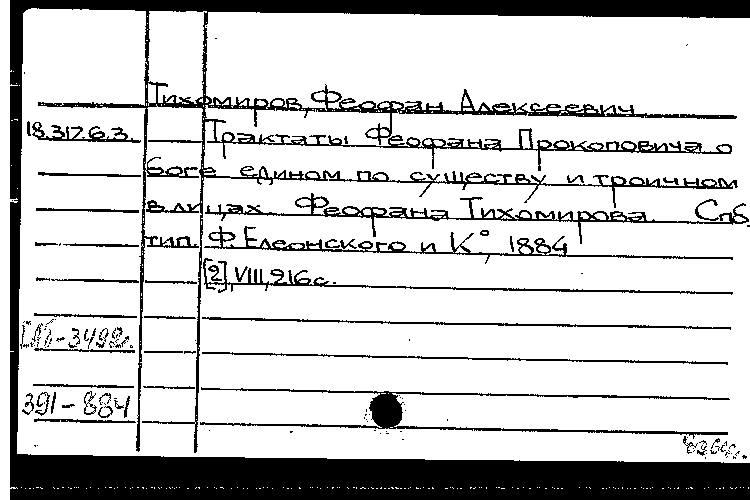 Тихомиров, Феофан Алексеевич
18.317.6.3. Трактаты Феофана Прокоповича о
боге едином по существу и троичном
в лицах Феофана Тихомирова. Спб,
тип. Ф. Елеонского и К°, 1884
[2], VIII, 216 с.
391-884